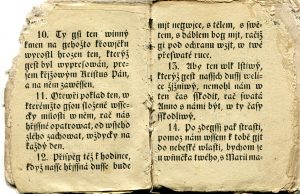 10. Ty gsi ten winný
kmen na gehožto křowjéku
wyrostl hrozen ten, kterýž
gest byl wypresowán, pre-
sem křižowým Kristus Pán,
a na něm zawěšen.
11. Otewři poklad ten, w
kterémžto gsau složené wsse-
cky milosti w něm, rač nás
hřjssné opatrowat, od wsseho
zlého zachowat, wždycky na
každý den.
12. Přispěg též k hodince,
když nasse hřjssná dusse bude
mjt negwjce, s tělem, s swě-
tem, s dáblem bog mjt, račiž
gi pod ochranu wzjt, w twé
přeswaté ruce.
13. Aby ten wlk lstiwý,
kterýž gest nassjch dussj we-
lice žižniwý, nemohl nám w
ten čas sskodit, rač swatá
Anno s námi být, w ty časy
sskodliwý.
14. Po zdegssj pak strasti,
pomoz nám wssem k radosti do
té nebeské wlasti, bychom je
u wnučka twého, s Marii ma-